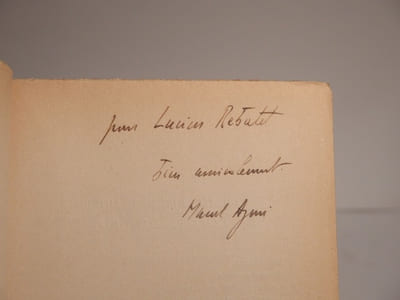 pour Lucien Rebatet
Bien amicalement.
Marcel Aymé